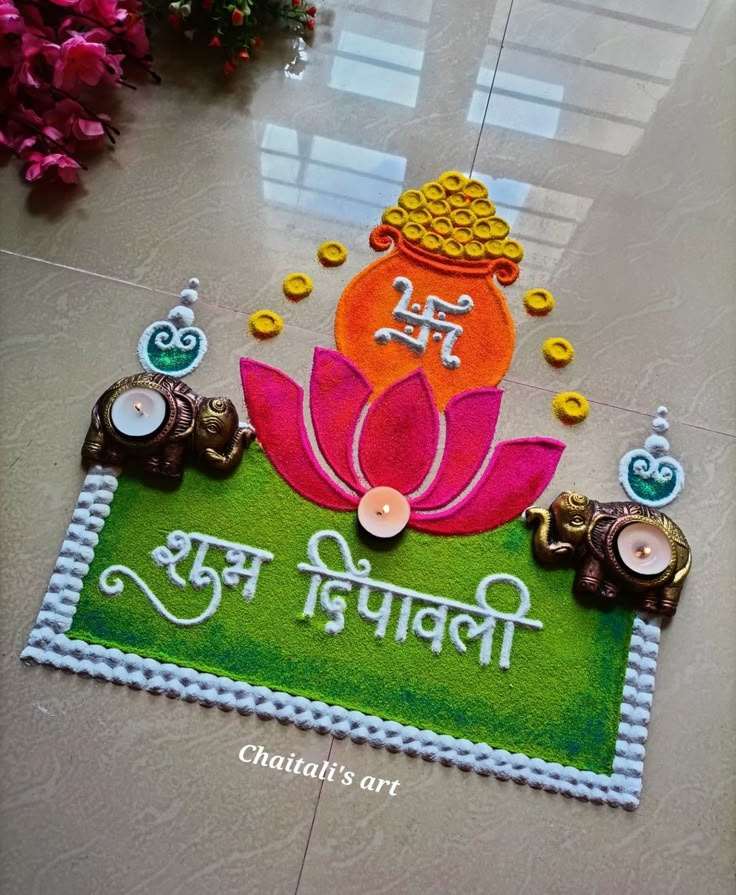 शुभ दिपावली
Chaitali's art